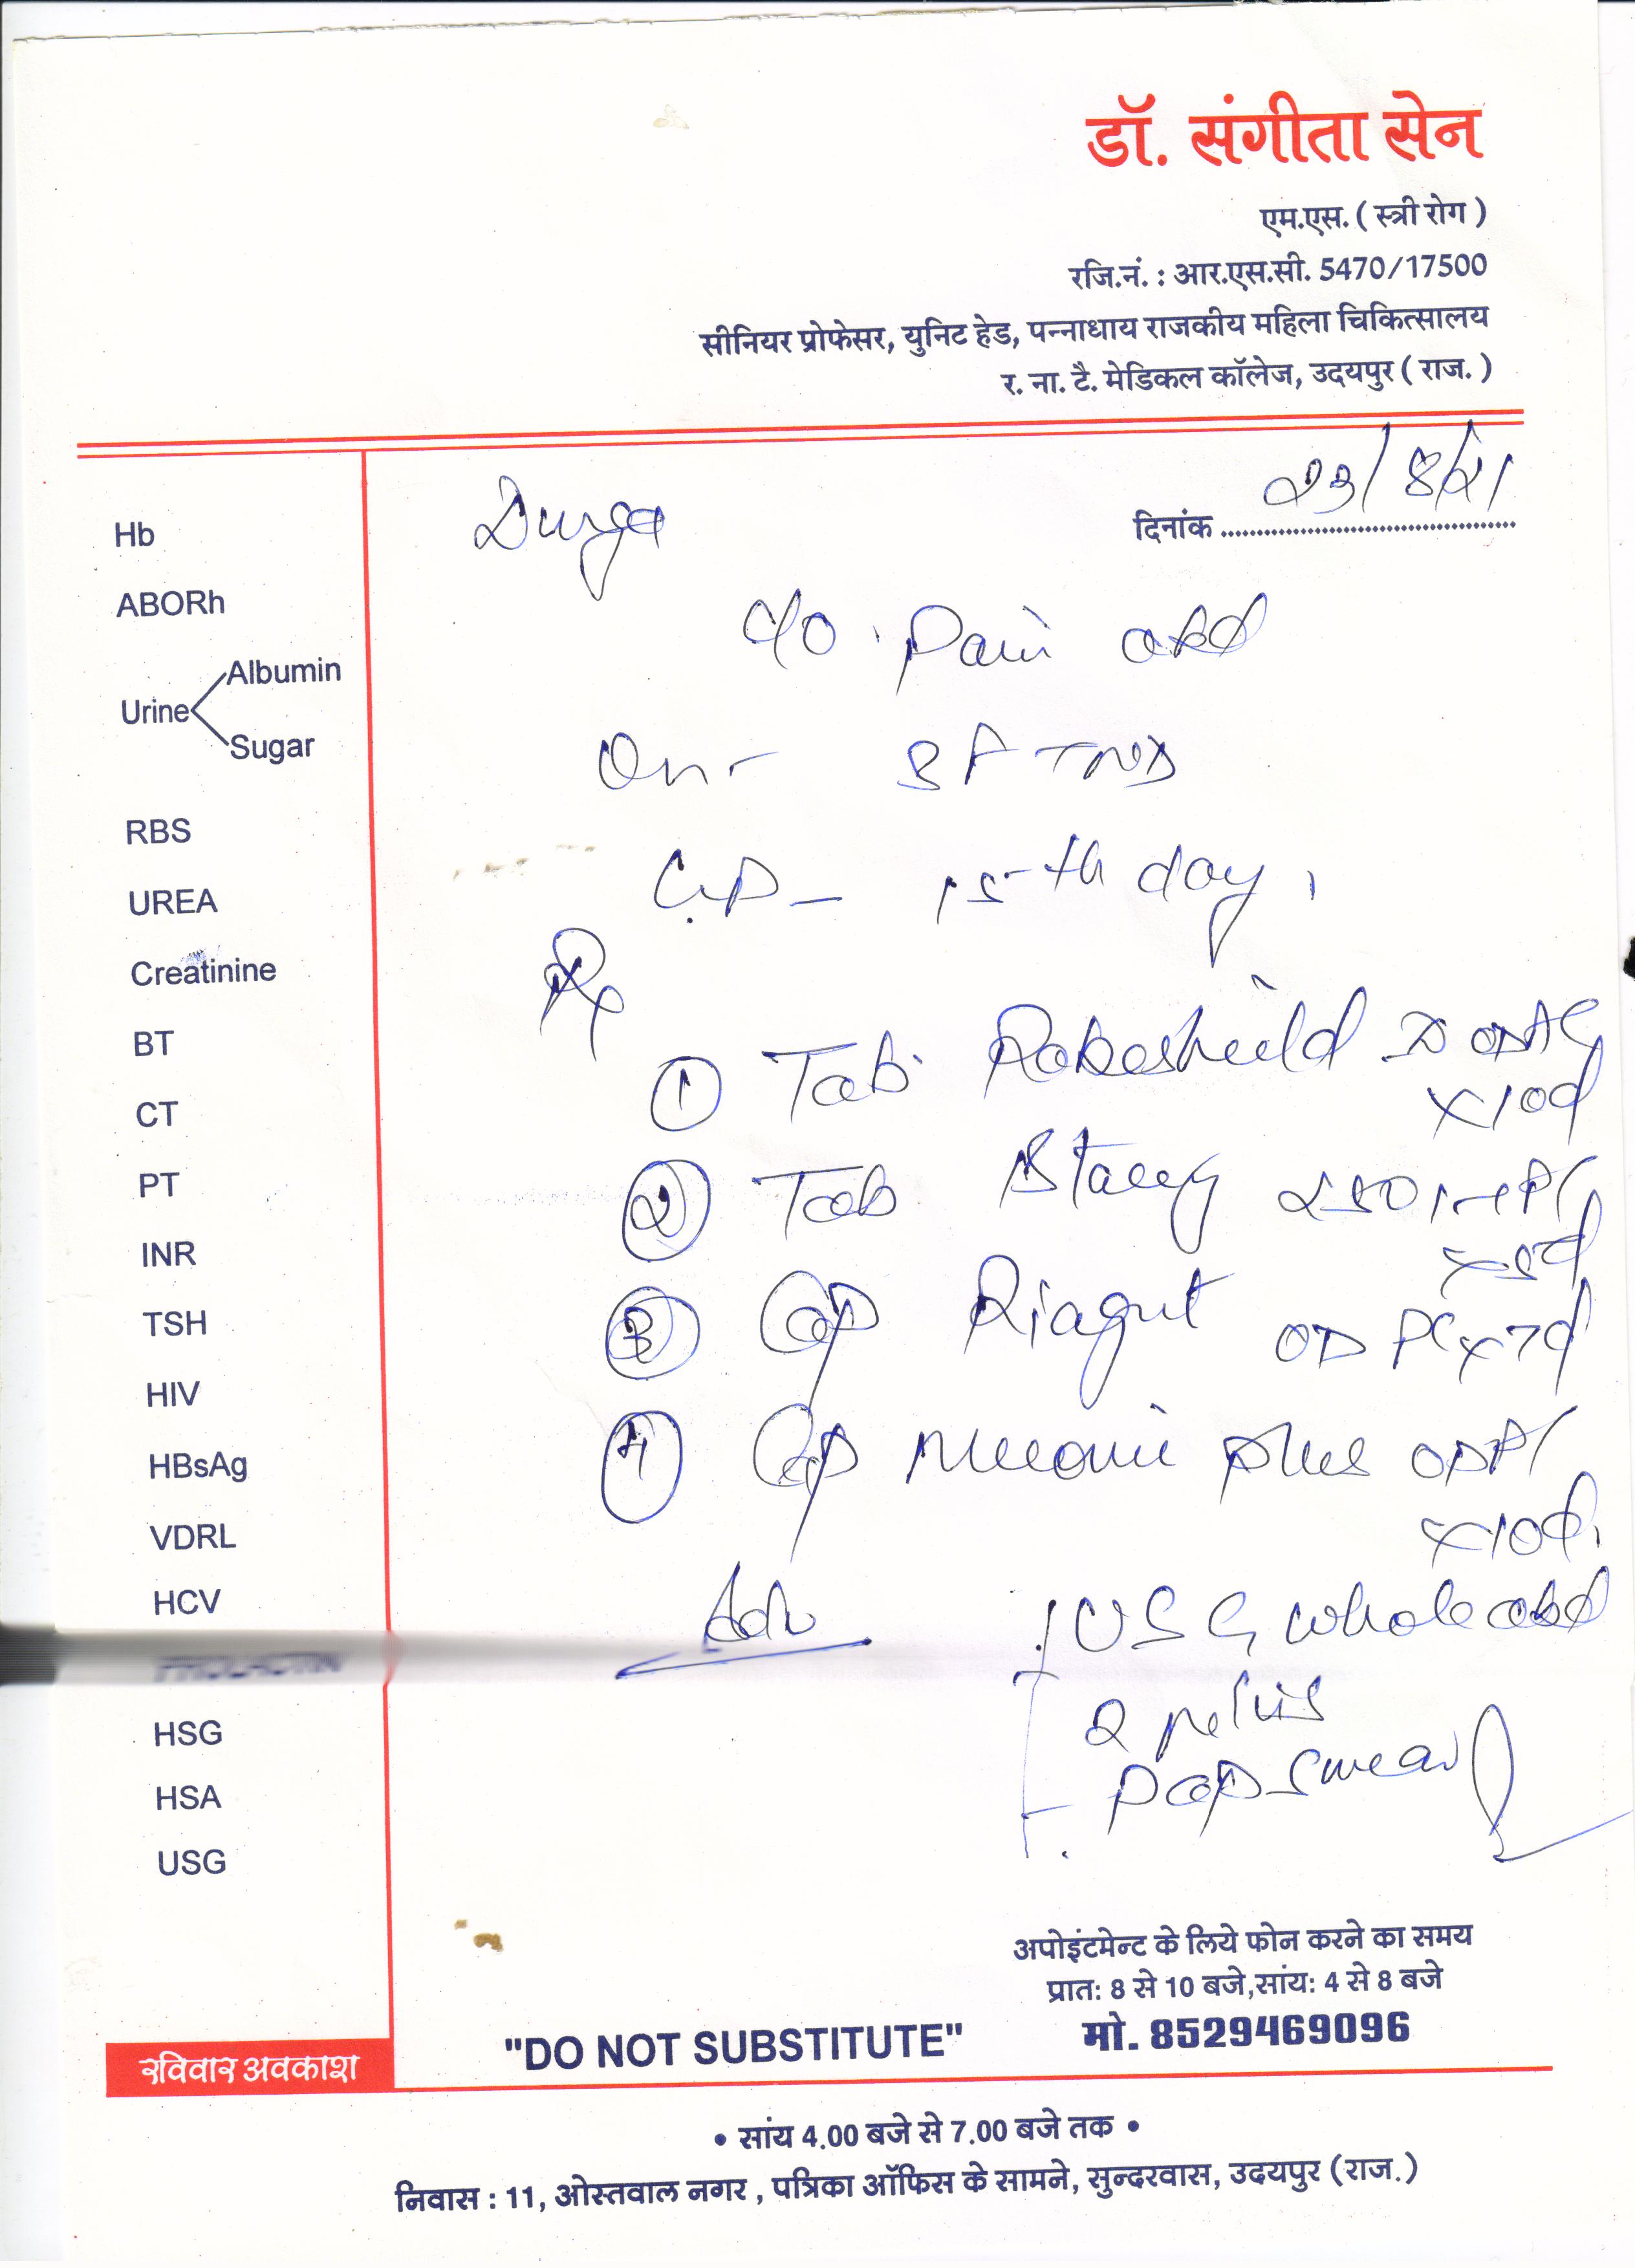 डॉ. संगीता सेन
एम.एस. ( स्त्री रोग )
रजि.नं. : आर.एस.सी. 5470/17500
सीनियर प्रोफेसर, युनिट हेड, पन्नाधाय राजकीय महिला चिकित्सालय
र. ना. टै. मेडिकल कॉलेज, उदयपुर ( राज. )
दिनांक 23/8/21
Durga
C/O Pain abd
15th day
Rx
① Tab. Rabeshield D OD AC
x10d
② Tab 250 1-1 PC
x5d
③ Cap Riagut OD PC x7d
④ Cap plus OD PC
x10d
Adv
USG whole abd
& pelvis
Pap smear
Hb
ABORh
Urine
Albumin
Sugar
RBS
UREA
Creatinine
BT
CT
PT
INR
TSH
HIV
HBsAg
VDRL
HCV
HSG
HSA
USG
अपोइंटमेन्ट के लिये फोन करने का समय
प्रात: 8 से 10 बजे,सांय: 4 से 8 बजे
"DO NOT SUBSTITUTE" मो. 8529469096
रविवार अवकाश
• सांय 4.00 बजे से 7.00 बजे तक •
निवास : 11, ओस्तवाल नगर , पत्रिका ऑफिस के सामने, सुन्दरवास, उदयपुर (राज.)